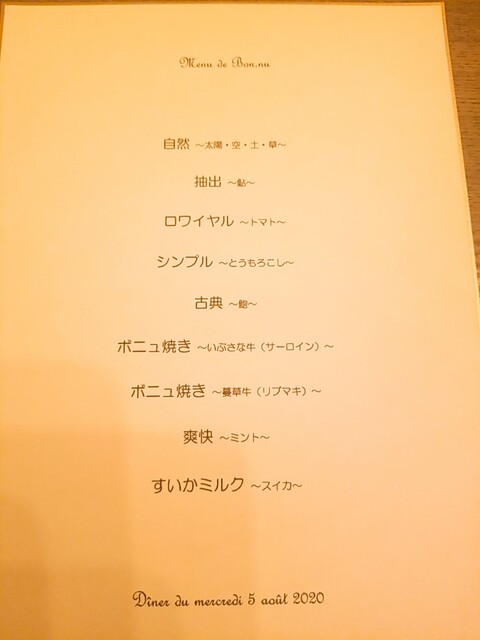 Menu de Bon.nu
自然 ～太陽・空・土・草～
抽出 ～鮎～
ロワイヤル ～トマト～
シンプル ～とうもろこし～
古典 ～鮑～
ボニュ焼き ～いぶさな牛（サーロイン）～
ボニュ焼き ～蔓草牛（リブマキ）～
爽快 ～ミント～
すいかミルク ～スイカ～
Dîner du mercredi 5 août 2020